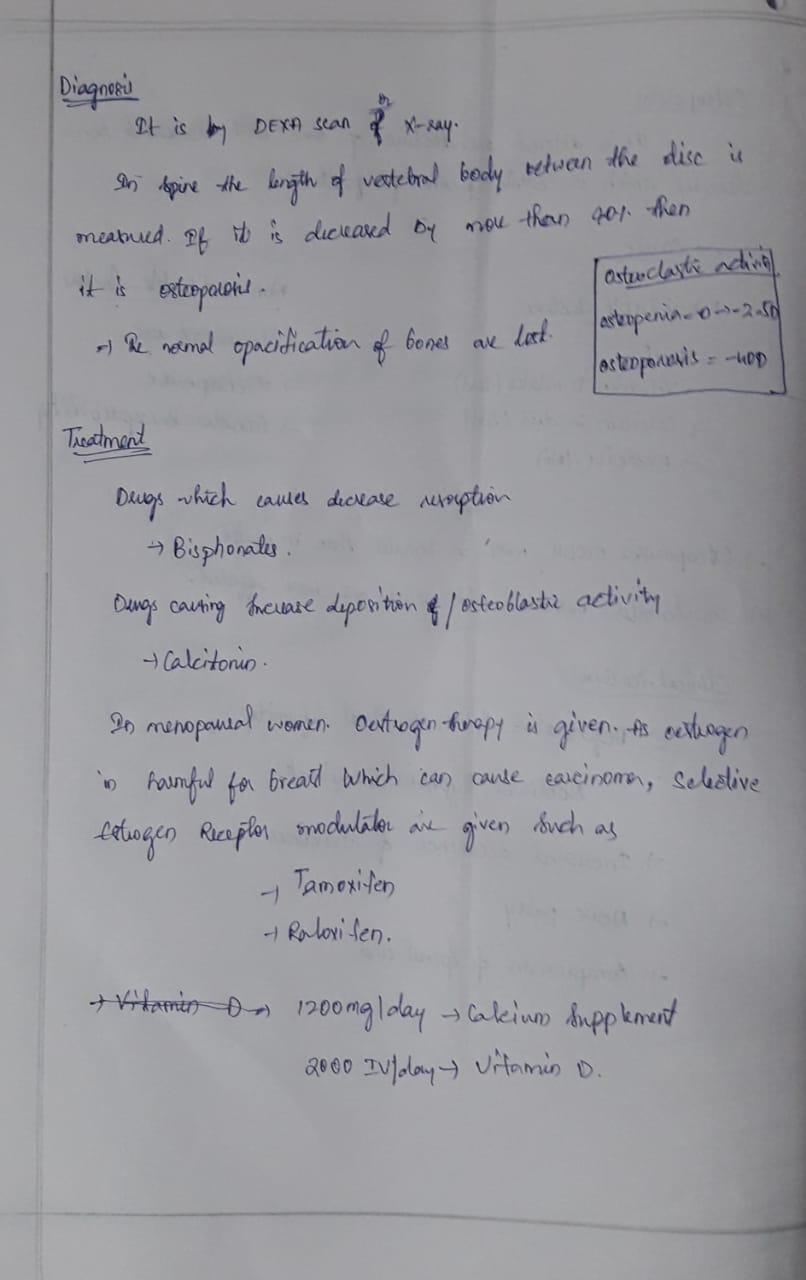 Diagnosis
It is by DEXA scan or X-ray.
In spine the length of vertebral body between the disc is
measured. If it is decreased by more than 40% then
it is osteoporosis.
→ The normal opacification of bones are lost.
osteoclastic activity
osteopenia = 0 → -2.5D
osteoporosis = -4DD
Treatment
Drugs which causes decrease resorption
→ Bisphonates.
Drugs causing increase deposition / osteoblastic activity
→ Calcitonin.
In menopausal women. Oestrogen therapy is given. As oestrogen
is harmful for breast which can cause carcinoma, Selective
Estrogen Receptor modulator are given such as
→ Tamoxifen
→ Raloxifen.
→ Vitamin D → 1200mg/day → Calcium Supplement
2000 IU/day → Vitamin D.